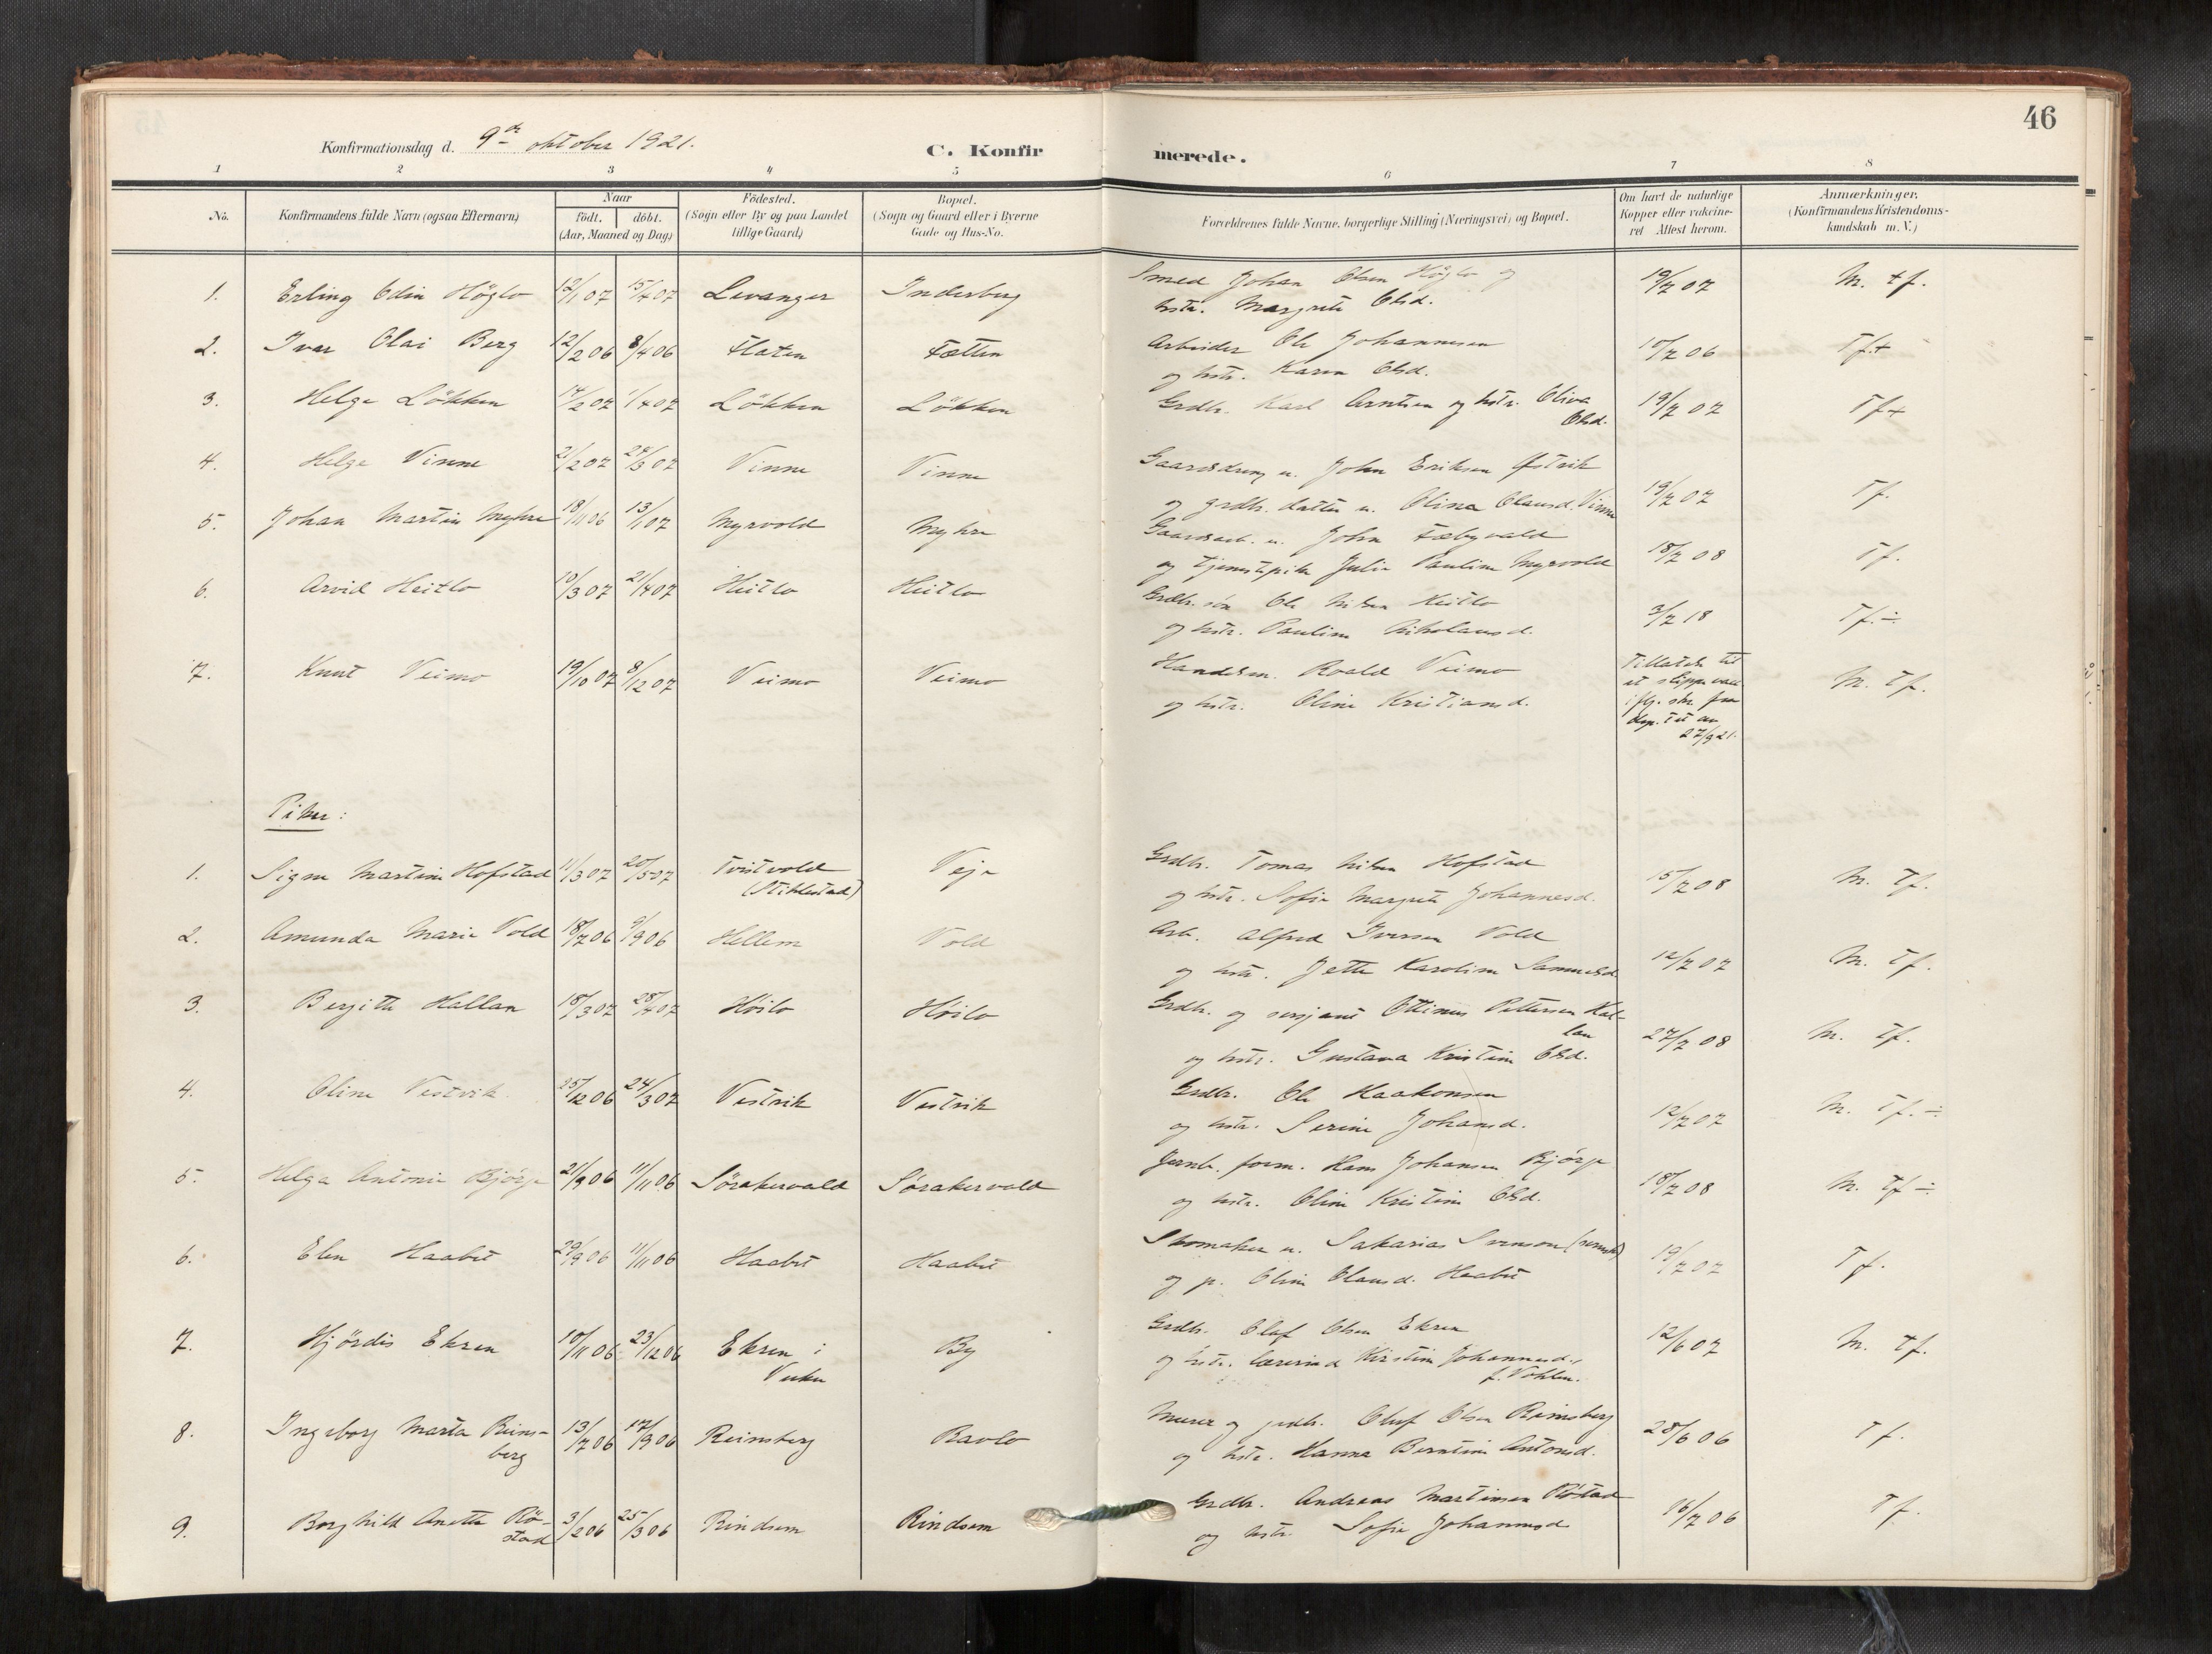 46
Konfirmationsdag d. 9de oktober 1921.
C. Konfirmerede.
1 2 3 4 5 6 7 8
No. Konfirmandens fulde Navn (ogsaa Efternavn) Naar født. døbt. (Aar, Maaned og Dag) Fødested. (Sogn eller By og paa Landet tillige Gaard) Bopæl. (Sogn og Gaard eller i Byerne Gade og Hus-No. Forældrenes fulde Navne, borgerlige Stilling (Næringsvei) og Bopæl. Om havt de naturlige Kopper eller vakcineret Attest herom. Anmærkninger. (Konfirmandens Kristendomskundskab m. V.)
1. Erling Odin Höglo 12/1 07 15/4 07 Levanger Inderberg Smed Johan Olsen Höglo og 19/7 07 M. tf.
hstr. Margrete Olsd.
2. Ivar Olai Berg 12/2 06 8/4 06 Flaten Fætten Arbeider Ole Johannesen 10/7 06 Tf+
og hstr. Karen Olsd.
3. Helge Lökken 14/2 07 1/4 07 Lökken Lökken Grdbr. Karl Arntsen og hstr. Oliva 19/7 07 Tf+
Olsd.
4. Helge Vinne 21/2 07 24/3 07 Vinne Vinne Gaardsdreng u. John Eriksen Østvik
og grdbr. datter u. Olina Olausd. Vinne 19/7 07 Tf.
5. Johan Martin Myhre 18/11 06 13/1 07 Myrvold Myhre Gaardsarb. u. John Fæbyvald
og tjenestepike Julie Pauline Myrvold 18/7 08 Tf.
6. Arvid Heitlo 10/3 07 21/4 07 Heitlo Heitlo Grdbr. sön Ole Nilsen Heitlo 3/7 18 Tf. ÷
og hstr. Pauline Nikolausd.
7. Knut Veimo 19/10 07 8/12 07 Veimo Veimo Handelsm. Roald Veimo M. tf.
og hstr. Oline Kristiansd.
Tillatelse til
at slippe vacc
iflg. skr. fra
dep. tet av
27/9 21.
Piker:
1. Signe Martine Hofstad 11/3 07 20/5 07 Tvistvold (Stiklestad) Veje Grdbr. Tomas Nilsen Hofstad 15/7 08 M. Tf.
og hstr. Sofie Margrete Johannesd.
2. Amunda Marie Vold 18/7 06 9/9 06 Hellem Vold Arb. Alfred Iversen Vold
og hstr. Jette Karoline Samuelsd. 12/7 07 M. Tf.
3. Bergitte Hallan 18/3 07 28/4 07 Höilo Höilo Grdbr. og sersjant Ottinus Pettersen Hal-
lan 27/7 08 M. Tf.
og hstr. Gustava Kristine Olsd.
4. Oline Vestvik 25/12 06 24/3 07 Vestvik Vestvik Grdbr. Ole Haakonsen
og hstr. Serine Johansd. 12/7 07 M. Tf. ÷
5. Helga Antonie Bjørge 21/9 06 11/11 06 Sörakervald Sörakervald Jernb. form. Hans Johansen Bjørge 18/7 08 M. Tf ÷
og hstr. Oline Kristine Olsd.
6. Elen Haabet 29/9 06 11/11 06 Haabet Haabet Skomaker u. Sakarias Svenson (svensk) 19/7 07 Tf.
og p. Oline Olausd. Haabet
7. Hjördis Ekren 10/11 06 23/12 06 Ekren i Vuku By Grdbr. Oluf Olsen Ekren 12/6 07 M. tf.
og hstr. lærerinde Kirstine Johannesd.,
f. Vohlen.
8. Ingeborg Marta Reins-
berg 13/7 06 17/9 06 Reinsberg Ravlo Murer og grdbr. Oluf Olsen Reinsberg 28/6 06 Tf.
og hstr. Hanna Berntine Antonsd.
9. Borghild Anette Rö-
stad 3/2 06 25/3 06 Rindsem Rindsem Grdbr. Andreas Martinsen Röstad 16/7 06 Tf.
og hstr. Sofie Johannesd